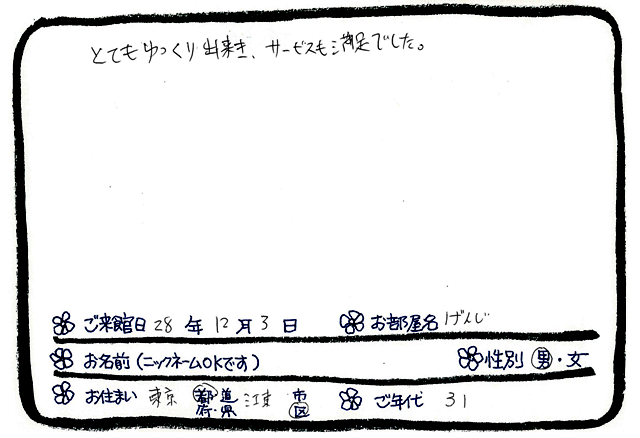 とてもゆっくり出来き、サービスも満足でした。
ご来館日 28 年 12 月 3 日 お部屋名 げんじ
お名前(ニックネームOKです) 性別 男・女
お住まい 東京 都道府県 江東 市区 ご年代 31